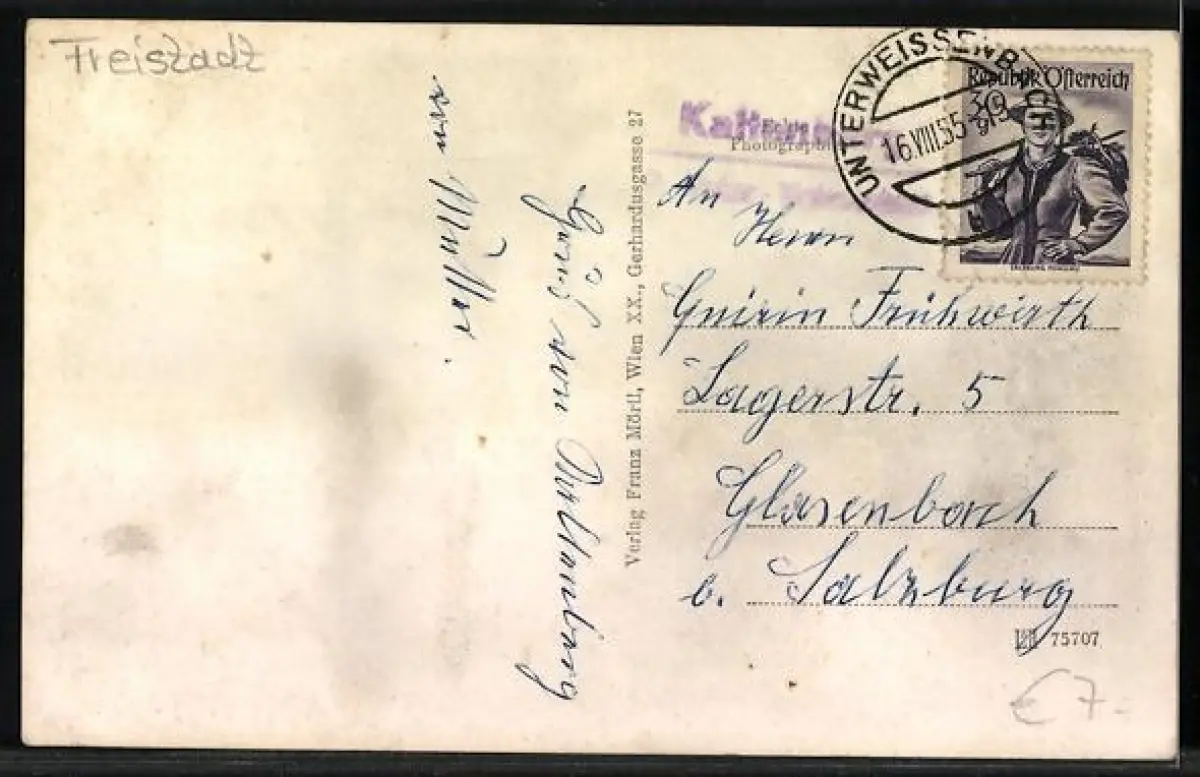 Freistadt
Gruß von Kaltenberg
von Müller.
Verlag Franz Mörtl, Wien XX., Gerhardusgasse 27
Echte
UNTERWEISSENBACH
16.VIII.55-9
Republik Österreich
30
An
Herrn
Quirin Frühwirth
Lagerstr. 5
Glasenbach
b. Salzburg
75707
€ 7.-